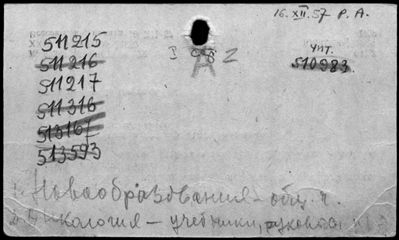 16.XII.57 Р. А.
511215
511216
511217
511316
513167
513593
I 98
А 2
чит.
510983
1. Новообразования – общ. ч.
2. Онкология – учебники, руковод.